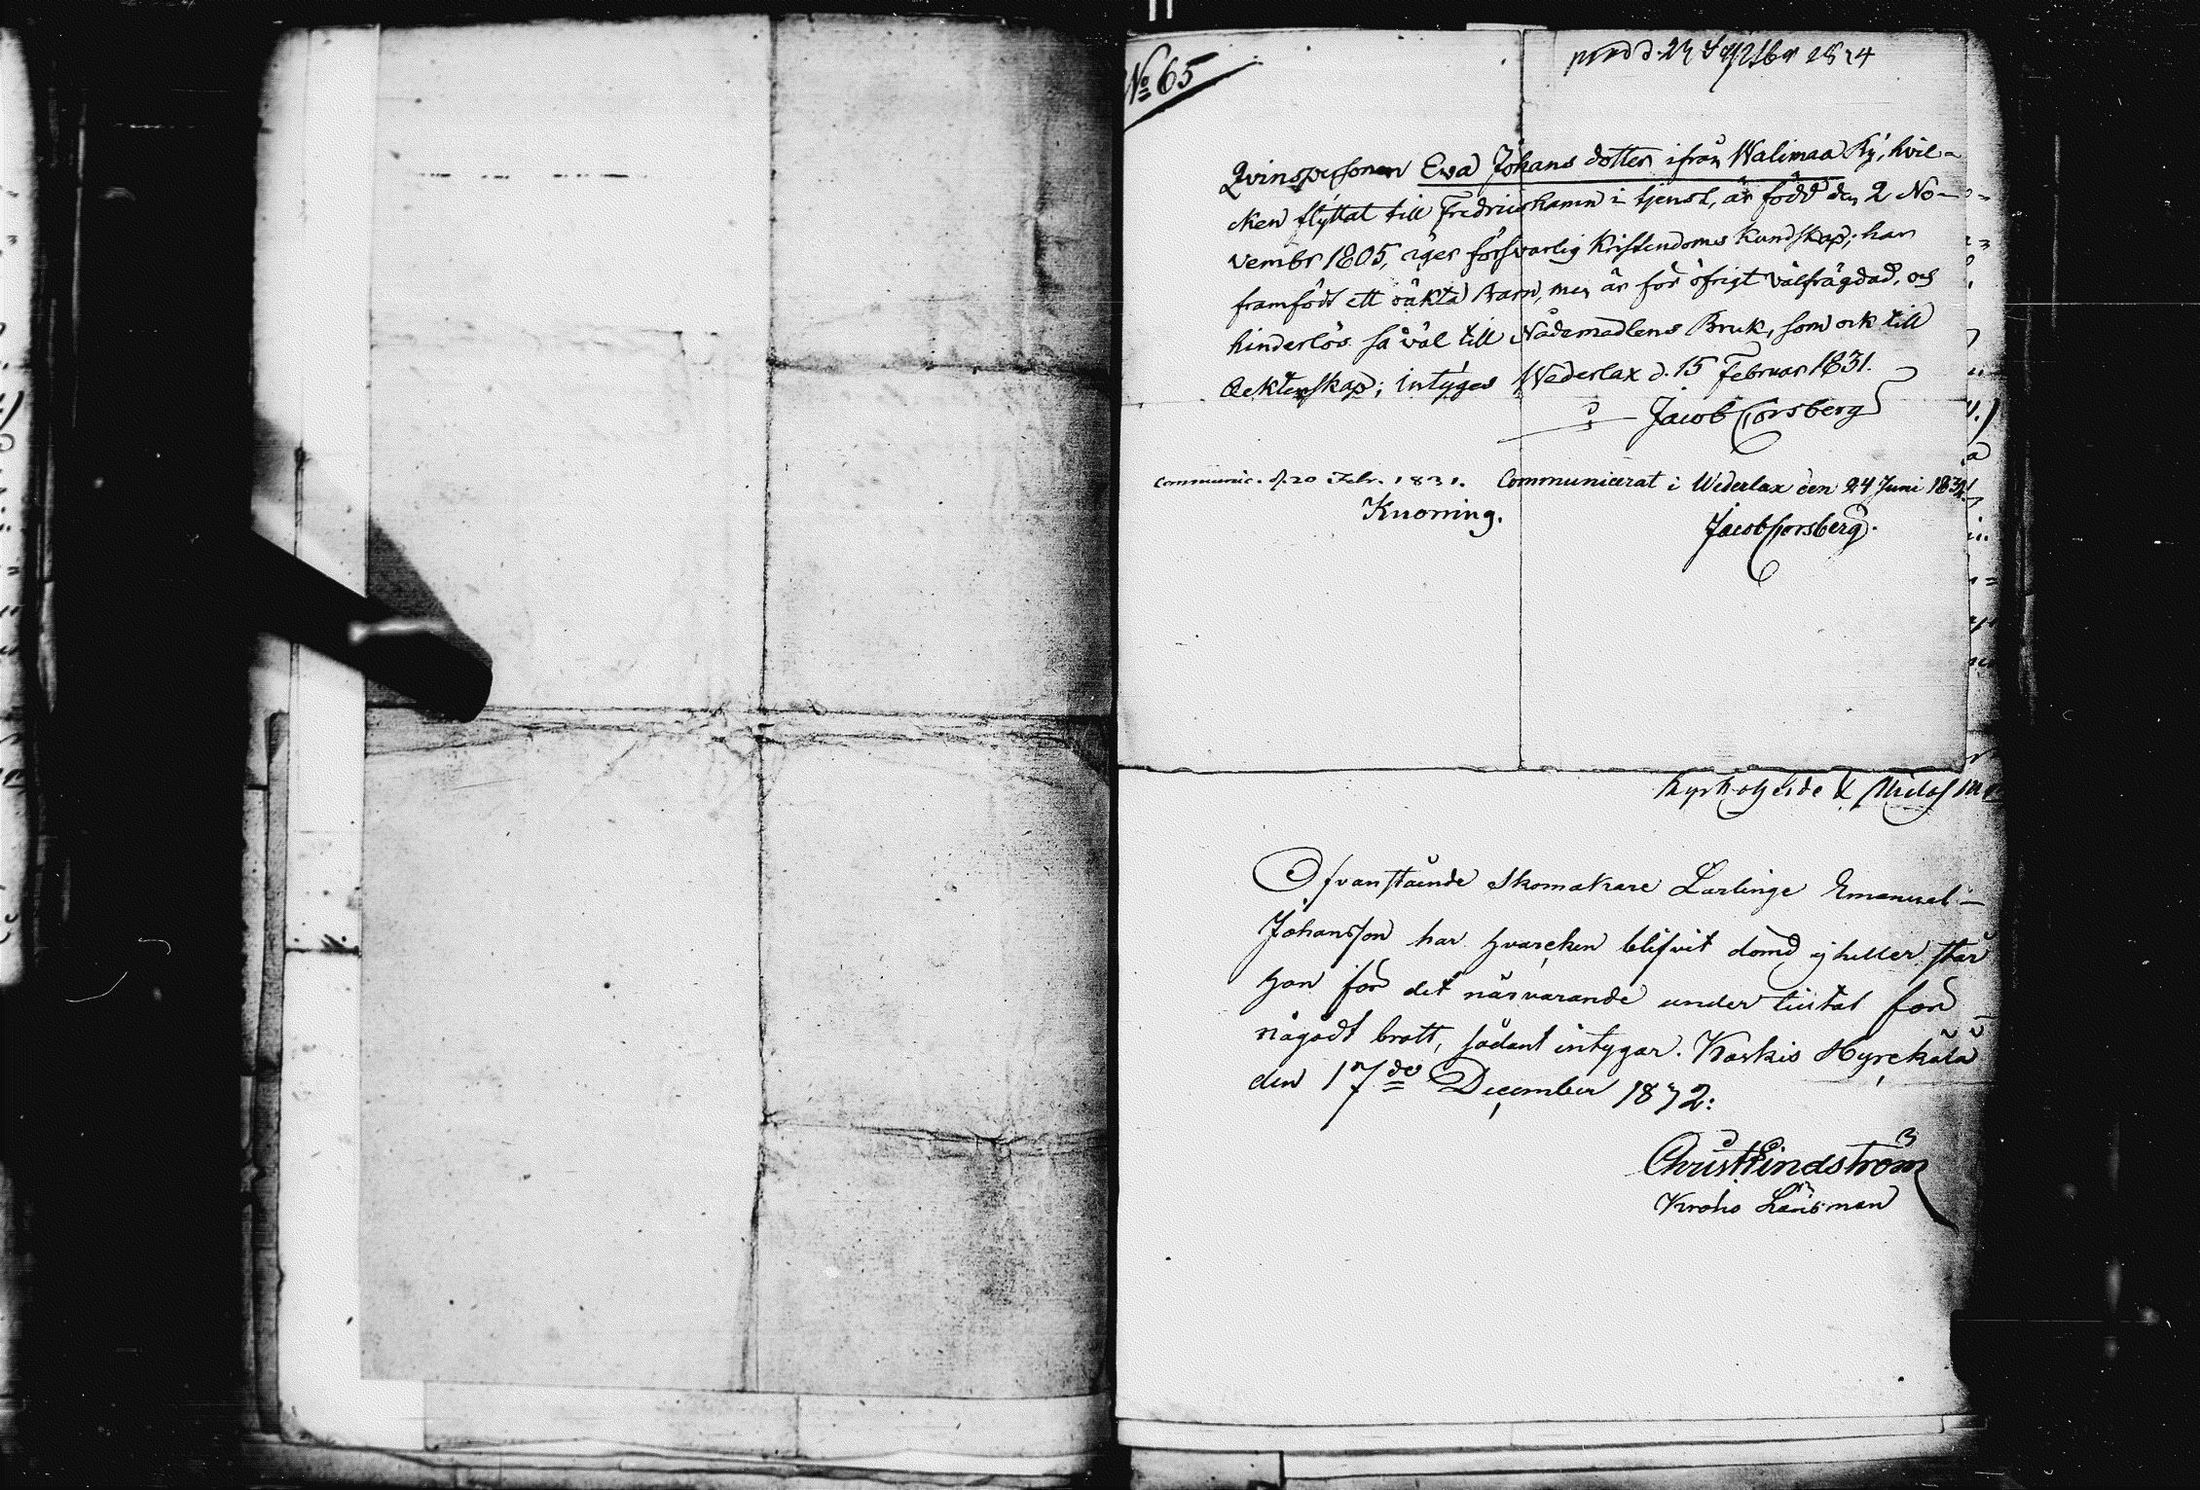 № 65
prod d. 23 Septbr 1834
Qvinspersonen Eva Johans dotter ifrån Walimaa By, hvil-
cken flyttat till Fredricshamn i tjenst, är född den 2 No-
vembr 1805, äger försvarlig Kristendoms Kundskap; har
framfödt ett oäkta Barn, men är för öfrigt välfrägdad, och
hinderlös så väl till Nådemedlens Bruk, som ock till
Aecktenskap; intygas Wederlax d. 15 Februar 1831.
Jacob Forsberg
Communic. d. 20 Febr. 1831.
Communicerat i Wederlax den 24 Juni 1831
Knorring.
Jacob Forsberg.
Kyrkoherde
Ofvanstående Skomakare Lärlinge Emanuel
Johansson har hvarcken blifvit dömd ej heller står
han för det närvarande under tiltal för
någodt brott, sådant intygar. Kaskis Hyrckälä
den 17de December 1832:
Christ Lindström
Krono Länsman